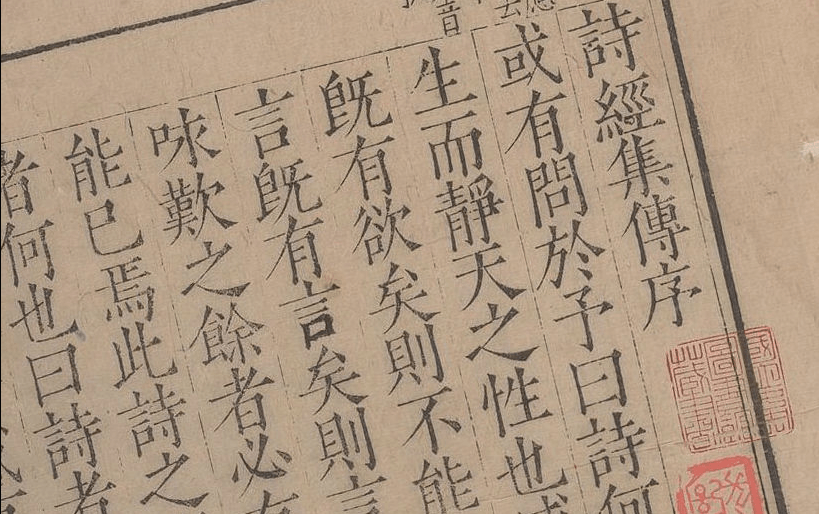 詩經集傳序
或有問於予曰詩何
生而靜天之性也
既有欲矣則不能
言既有言矣則言
咏歎之餘者必有
能已焉此詩之
者何也曰詩者
音